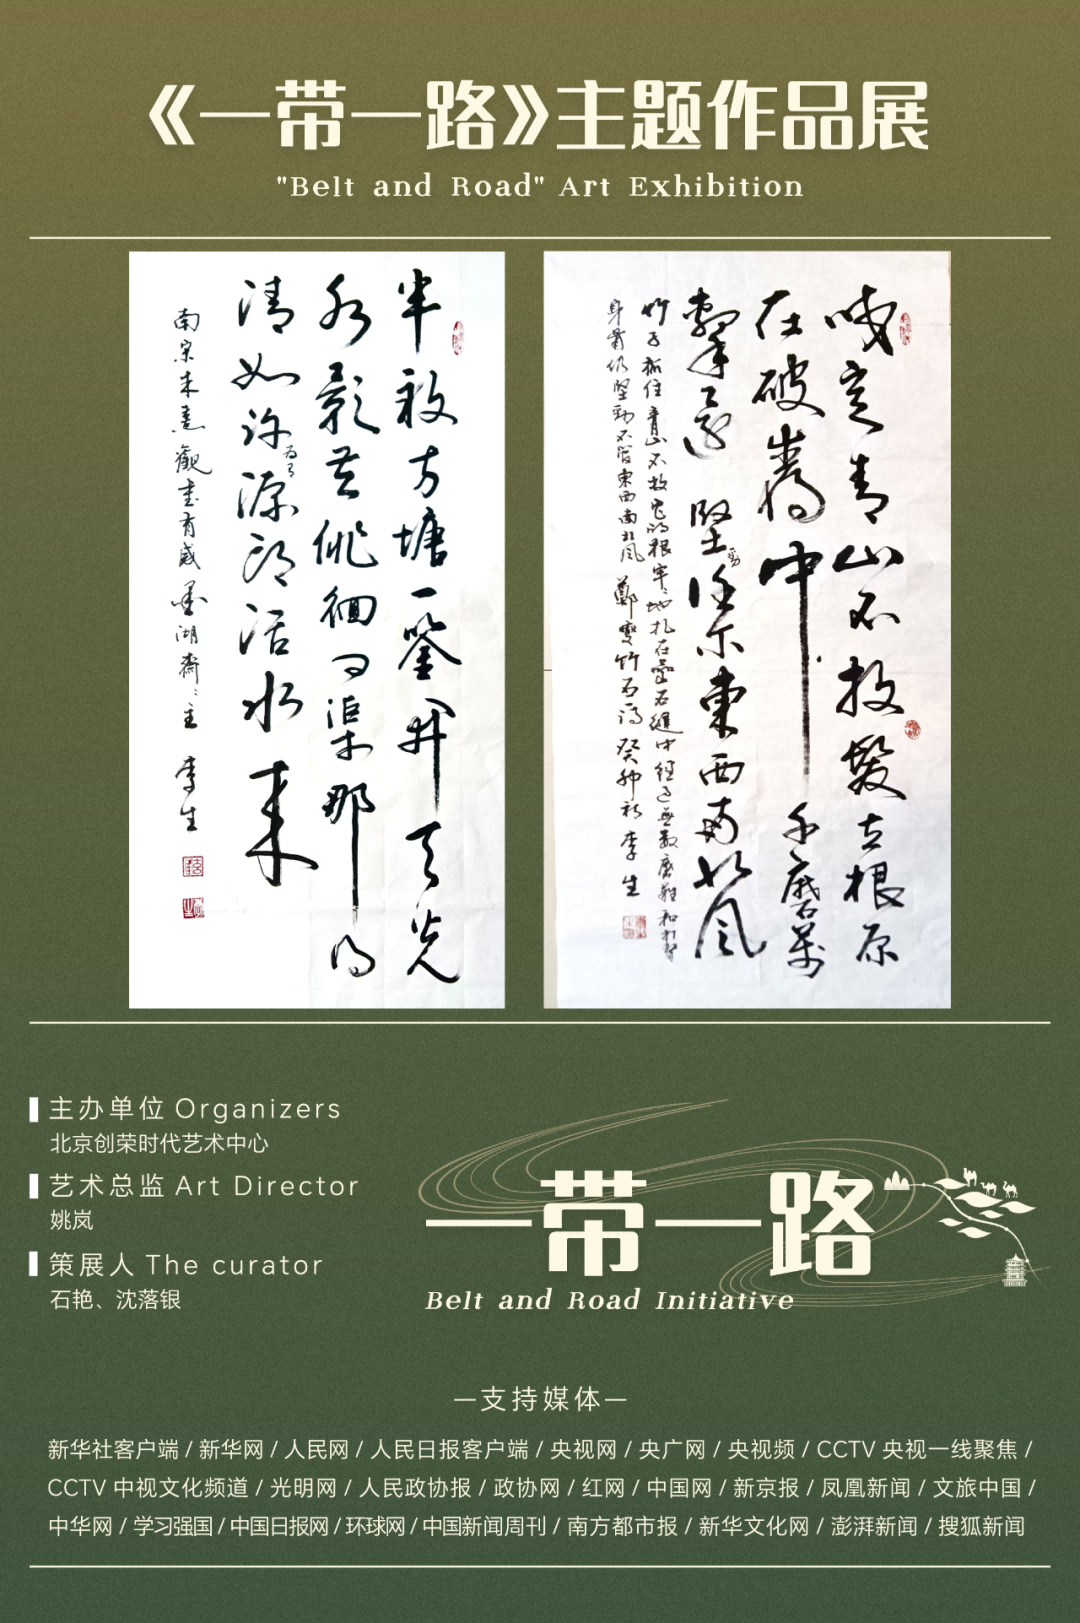 《一带一路》主题作品展
"Belt and Road" Art Exhibition
半亩方塘一鉴开天光
云影共徘徊问渠那得
清如许为有源头活水来
南宋朱熹觀書有感 墨湖斋主 李生
咬定青山不放鬆立根原
在破岩中千磨萬
擊還堅勁任尔東西南北风
竹子抓住青山不放它的根牢牢地扎在岩石缝中经过無数磨難和打擊
身骨仍堅勁不管東西南北风 鄭燮竹石诗 癸卯 李生
主办单位 Organizers
北京创荣时代艺术中心
艺术总监 Art Director
姚岚
策展人 The curator
石艳、沈落银
一带一路
Belt and Road Initiative
—支持媒体—
新华社客户端 / 新华网 / 人民网 / 人民日报客户端 / 央视网 / 央广网 / 央视频 / CCTV 央视一线聚焦 /
CCTV 中视文化频道 / 光明网 / 人民政协报 / 政协网 / 红网 / 中国网 / 新京报 / 凤凰新闻 / 文旅中国 /
中华网 / 学习强国 / 中国日报网 / 环球网 / 中国新闻周刊 / 南方都市报 / 新华文化网 / 澎湃新闻 / 搜狐新闻